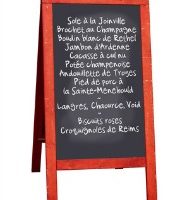 Sole à la Joinville
Brochet au Champagne
Boudin blanc de Rethel
Jambon d'Ardenne
Cacasse à cul nu
Potée champenoise
Andouillette de Troyes
Pied de porc à
la Sainte-Ménehould
Langres, Chaource, Void
~
Biscuits roses
Croquignoles de Reims